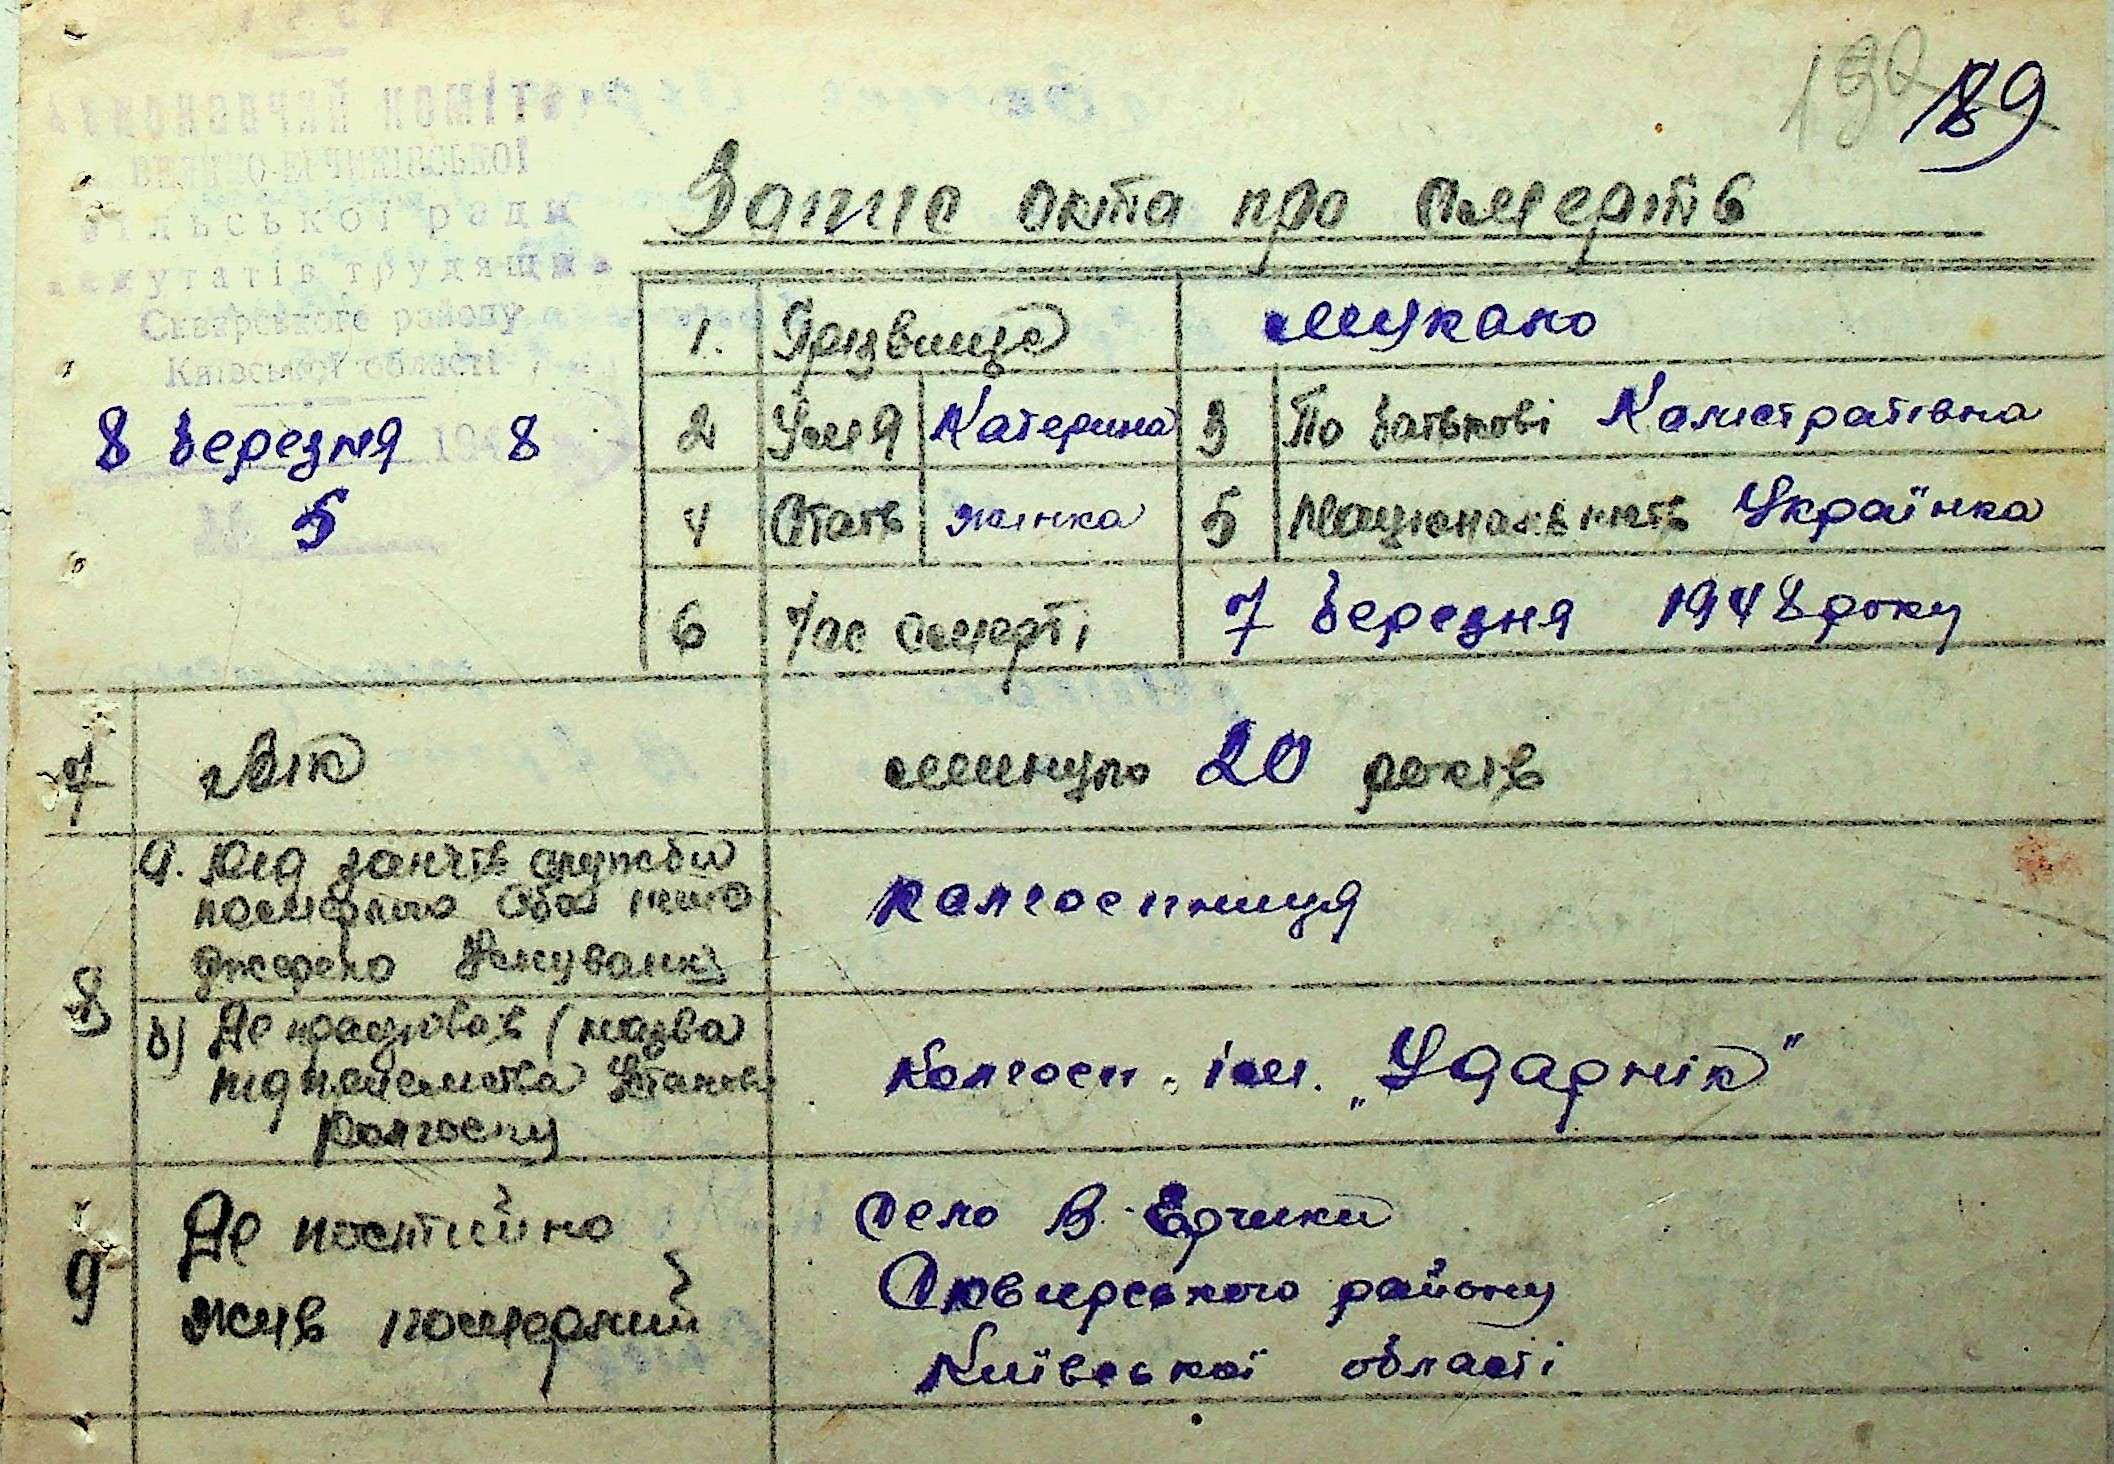 189
Виконавчий комітет
Велико-Єрчиківської
сільської ради
депутатів трудящих
Сквирського району
Київської області
8 березня 194 8
№ 5
Запис акта про смерть
1. Прізвище Мукало
2 Імя Катерина 3 По батькові Калістратівна
4 Стать жінка 5 Національність Українка
6 Час смерті 7 березня 1948 року
7 Вік минуло 20 років
8 а. Під занятів служби
померлого або інше
джерело колгоспниця
б) Де працював (назва
підприємства
колгоспу Колгосп ім. „Ударнік"
9 Де постійно
жив померлий Село В-Єрчики
Сквирського району
Київської області